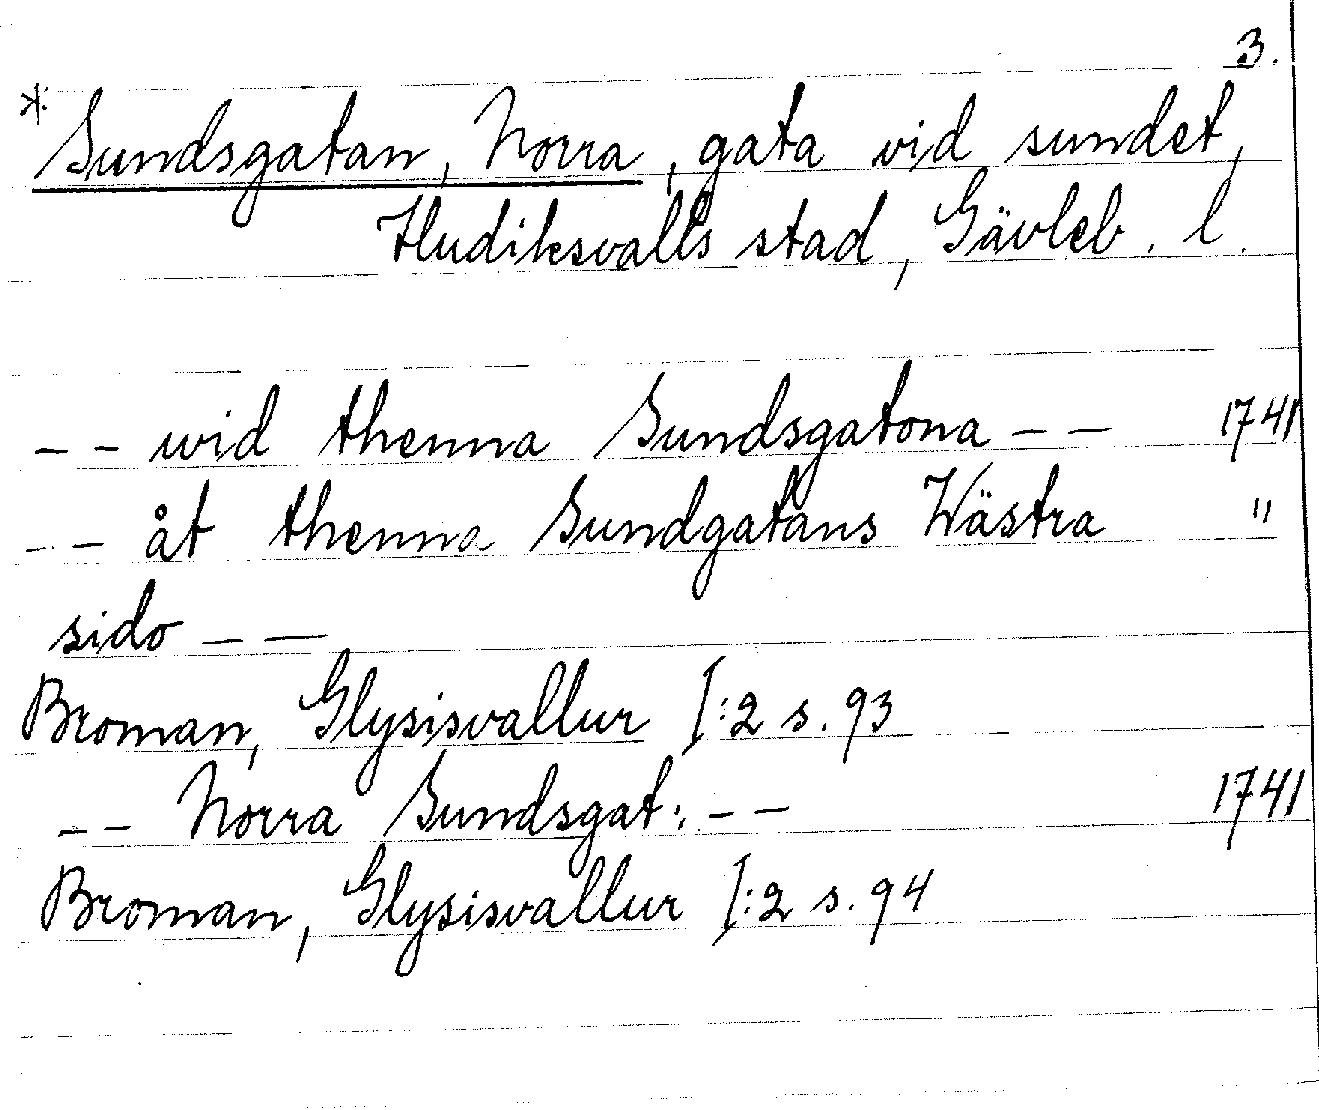 3.
* Sundsgatan, Norra, gata vid sundet,
Hudiksvalls stad, Gävleb. l.
-- wid thenna Sundsgatona -- 1741
-- åt thenna Sundgatans Wästra "
sido --
Broman, Glysisvallur I:2 s. 93
-- Norra Sundsgat: -- 1741
Broman, Glysisvallur I:2 s. 94